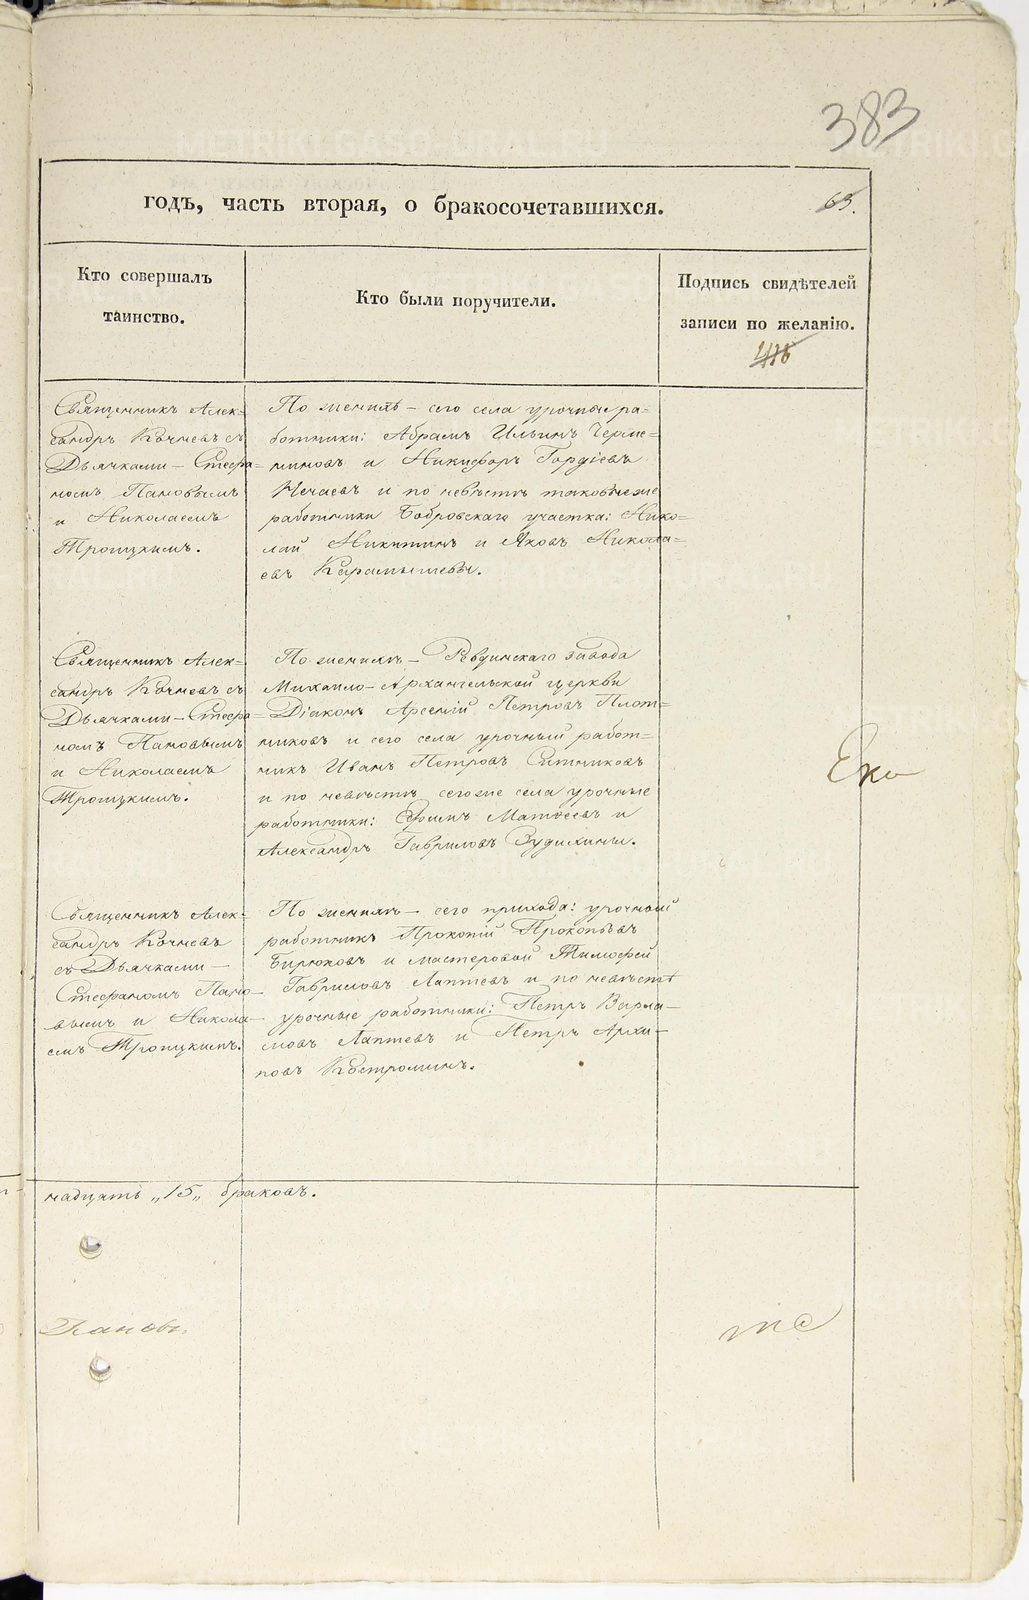 383
годъ, часть вторая, о бракосочетавшихся.
63.
Кто совершалъ
таинство.
Кто были поручители.
Подпись свидѣтелей
записи по желанію.
Священникъ Алек=
сандръ Кочневъ съ
Дьячками — Стефа=
номъ Пановымъ
и Николаемъ
Троицкимъ.
По женихѣ — сего села урочные ра=
ботники: Абрамъ Ильинъ Черме=
ниновъ и Никифоръ Гордіевъ
Нечаевъ и по невѣстѣ таковые же
работники Бобровскаго участка: Нико=
лай Никитинъ и Яковъ Никола=
евъ Карамышевы.
Священникъ Алек=
сандръ Кочневъ съ
Дьячками — Стефа=
номъ Пановымъ
и Николаемъ
Троицкимъ.
По женихѣ — Ревдинскаго завода
Михаило-Архангельской церкви
Діаконъ Арсеній Петровъ Плот=
никовъ и сего села урочный работ=
никъ Иванъ Петровъ Ситниковъ
и по невѣстѣ сего же села урочные
работники: Ефимъ Матвеевъ и
Александръ Гавриловъ Зудихины.
Священникъ Алек=
сандръ Кочневъ
съ Дьячками —
Стефаномъ Пано—
вымъ и Никола—
емъ Троицкимъ.
По женихѣ — сего прихода: урочный
работникъ Прокопій Прокопьевъ
Бирюковъ и мастеровой Тимофей
Гавриловъ Лаптевъ и по невѣстѣ
урочные работники: Петръ Варла—
мовъ Лаптевъ и Петръ Архи—
повъ Костроминъ.
надцать „15„ браковъ.
Пановъ.